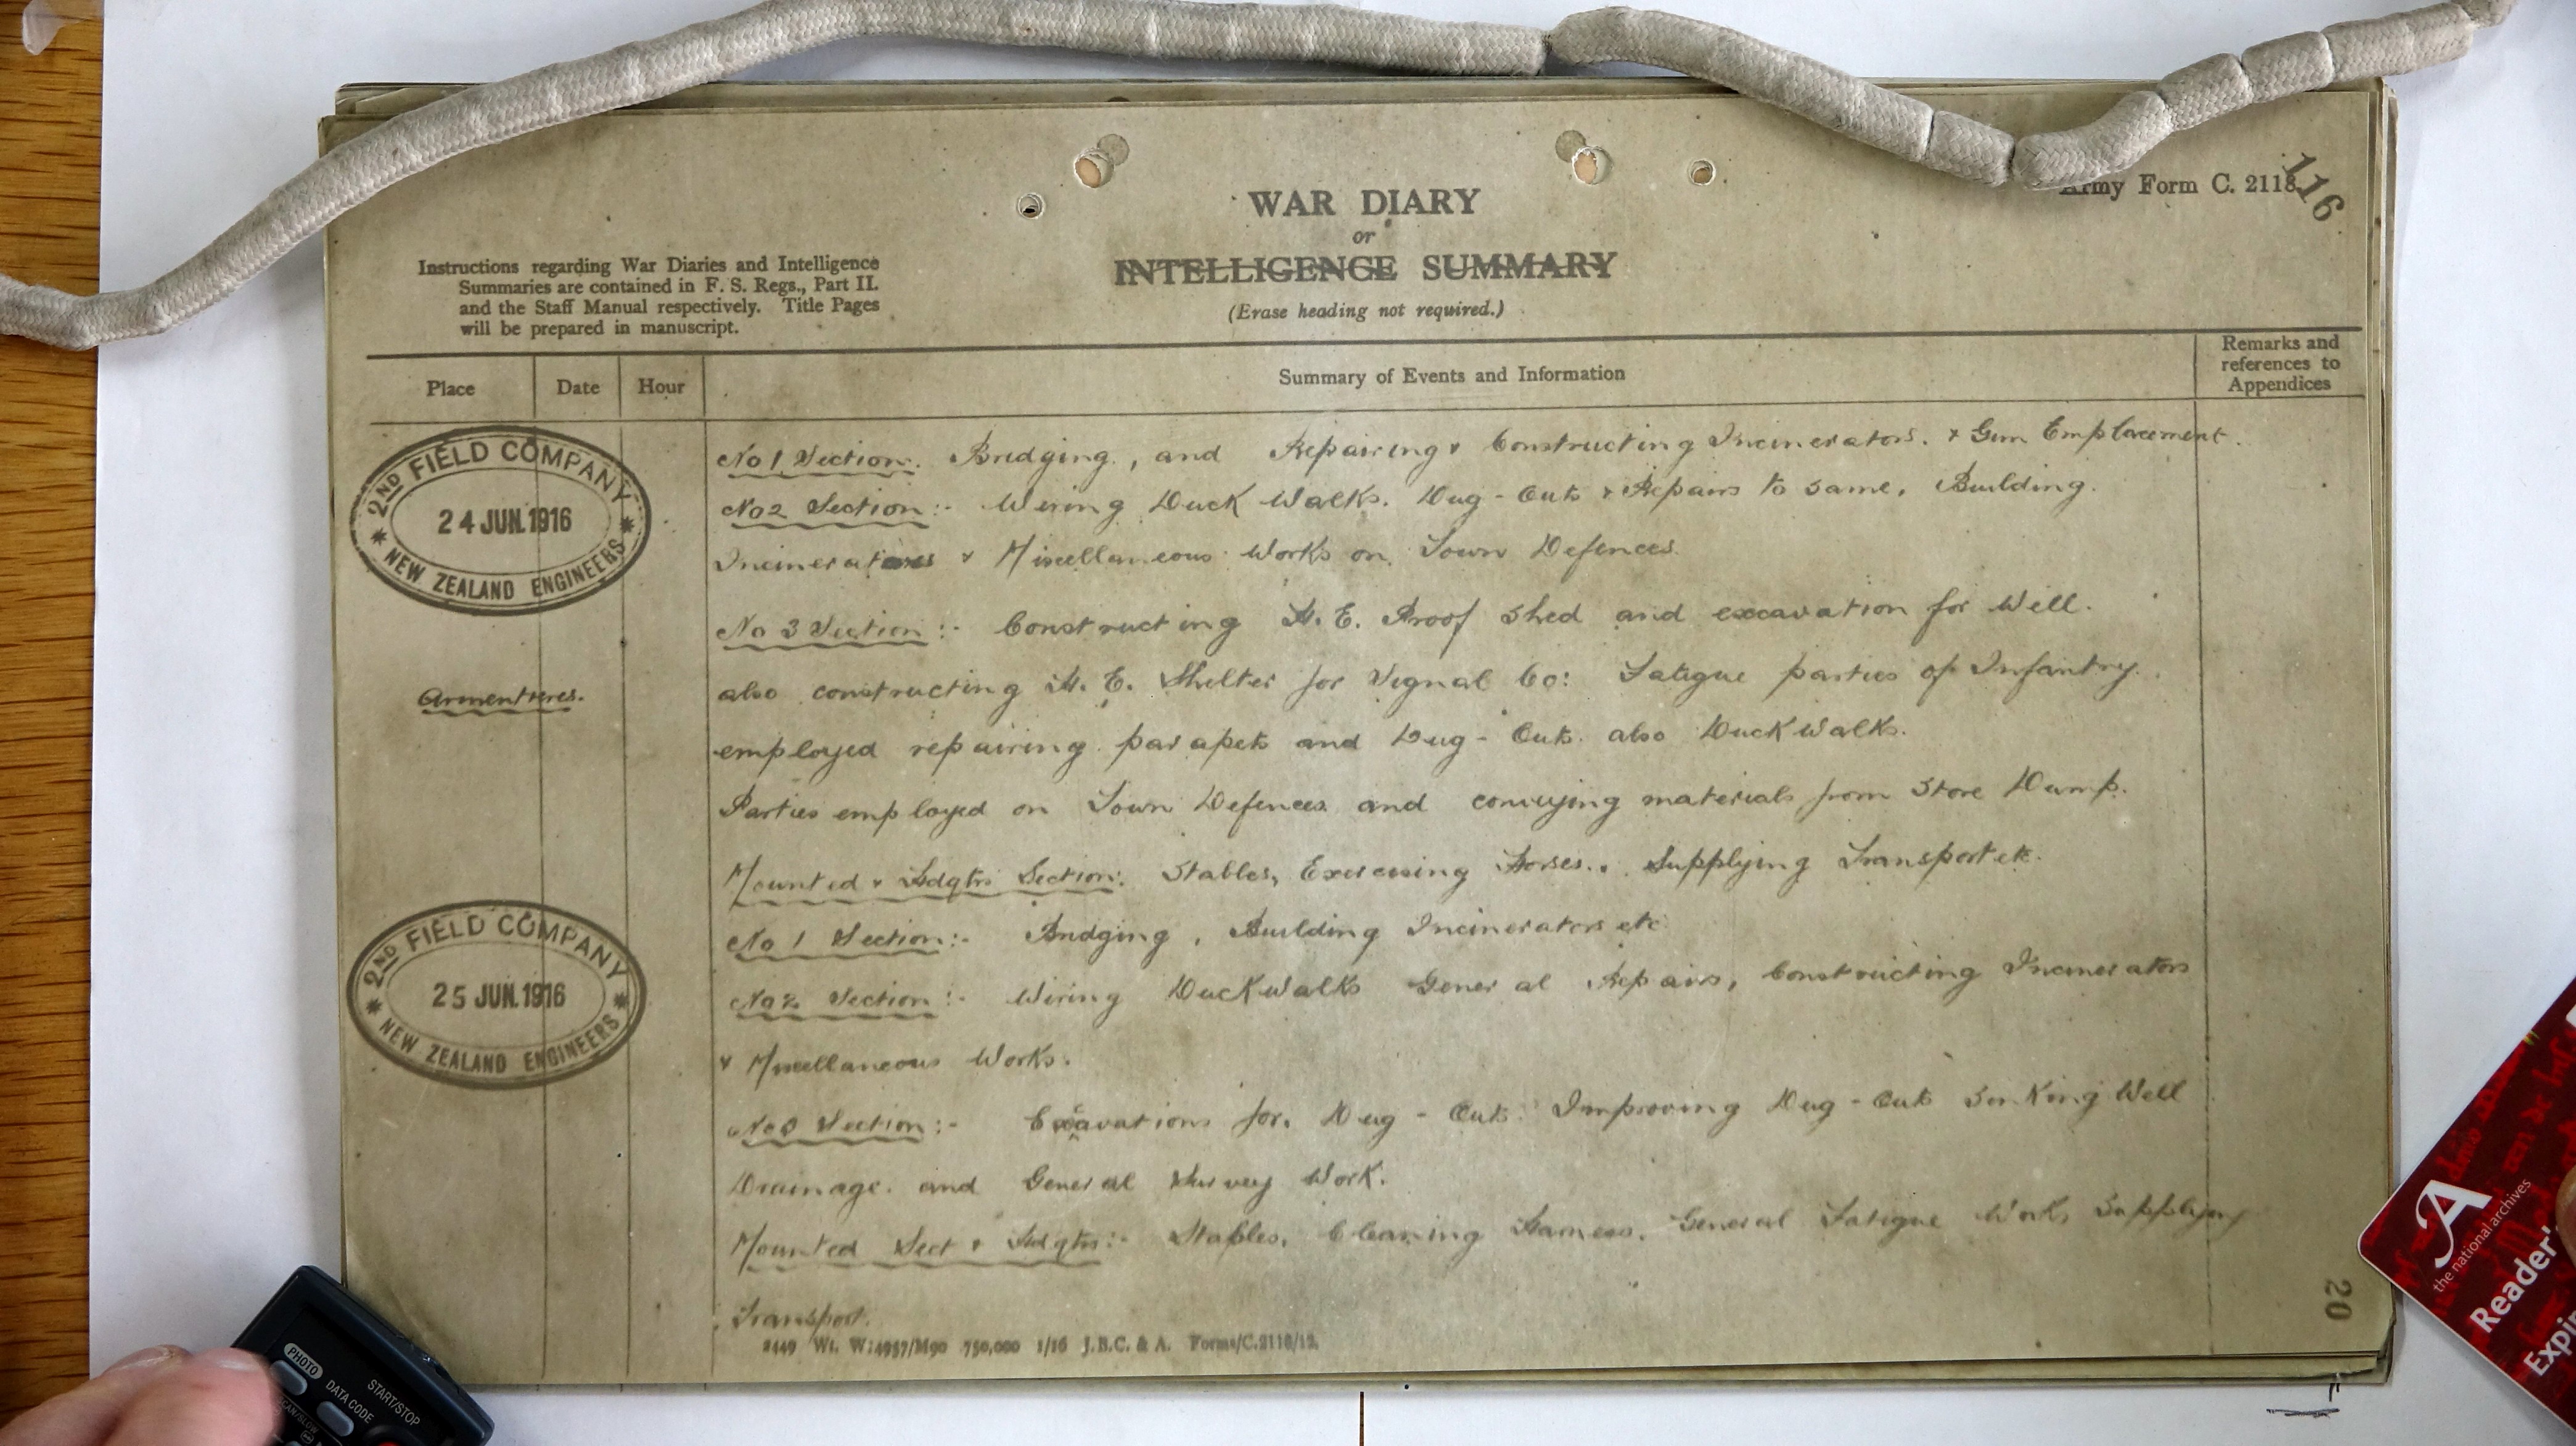 116
Army Form C. 2118.
WAR DIARY
or
INTELLIGENCE SUMMARY
(Erase heading not required.)
Instructions regarding War Diaries and Intelligence
Summaries are contained in F. S. Regs., Part II.
and the Staff Manual respectively. Title Pages
will be prepared in manuscript.
Place Date Hour Summary of Events and Information Remarks and references to Appendices
2ND FIELD COMPANY
24 JUN. 1916
NEW ZEALAND ENGINEERS
No 1 Section. Bridging, and Repairing & Constructing Incinerators. & Gun Emplacement.
No 2 Section:- Wiring Duck Walks. Dug-Outs & Repairs to same, Building.
Incinerators & Miscellaneous Works on Town Defences.
No 3 Section:- Constructing H.E. Proof Shed and excavation for Well.
Armentieres.
also constructing H.E. Shelter for Signal Co: Fatigue parties of Infantry.
employed repairing parapets and Dug-Outs also Duckwalks.
Parties employed on Town Defences and conveying materials from Store Dump.
Mounted & Hdqtrs Section: Stables, Exercising Horses. Supplying Transport etc.
2ND FIELD COMPANY
25 JUN. 1916
NEW ZEALAND ENGINEERS
No 1 Section:- Bridging, Building Incinerators etc
No 2 Section:- Wiring Duckwalks General Repairs, Constructing Incinerators
& Miscellaneous Works.
No 3 Section:- Excavations for Dug-Outs. Improving Dug-Outs Sinking Well
Drainage. and General Survey Work.
Mounted Sect & Hdqtrs:- Stables, Cleaning Harness, General Fatigue Work, Supplying
Transport.
2449 Wt. W14957/M90 750,000 1/16 J.B.C. & A. Forms/C.2118/12.
20
PHOTO
DATA CODE
START/STOP
SCAN/SLOW
the national archives
Reader's